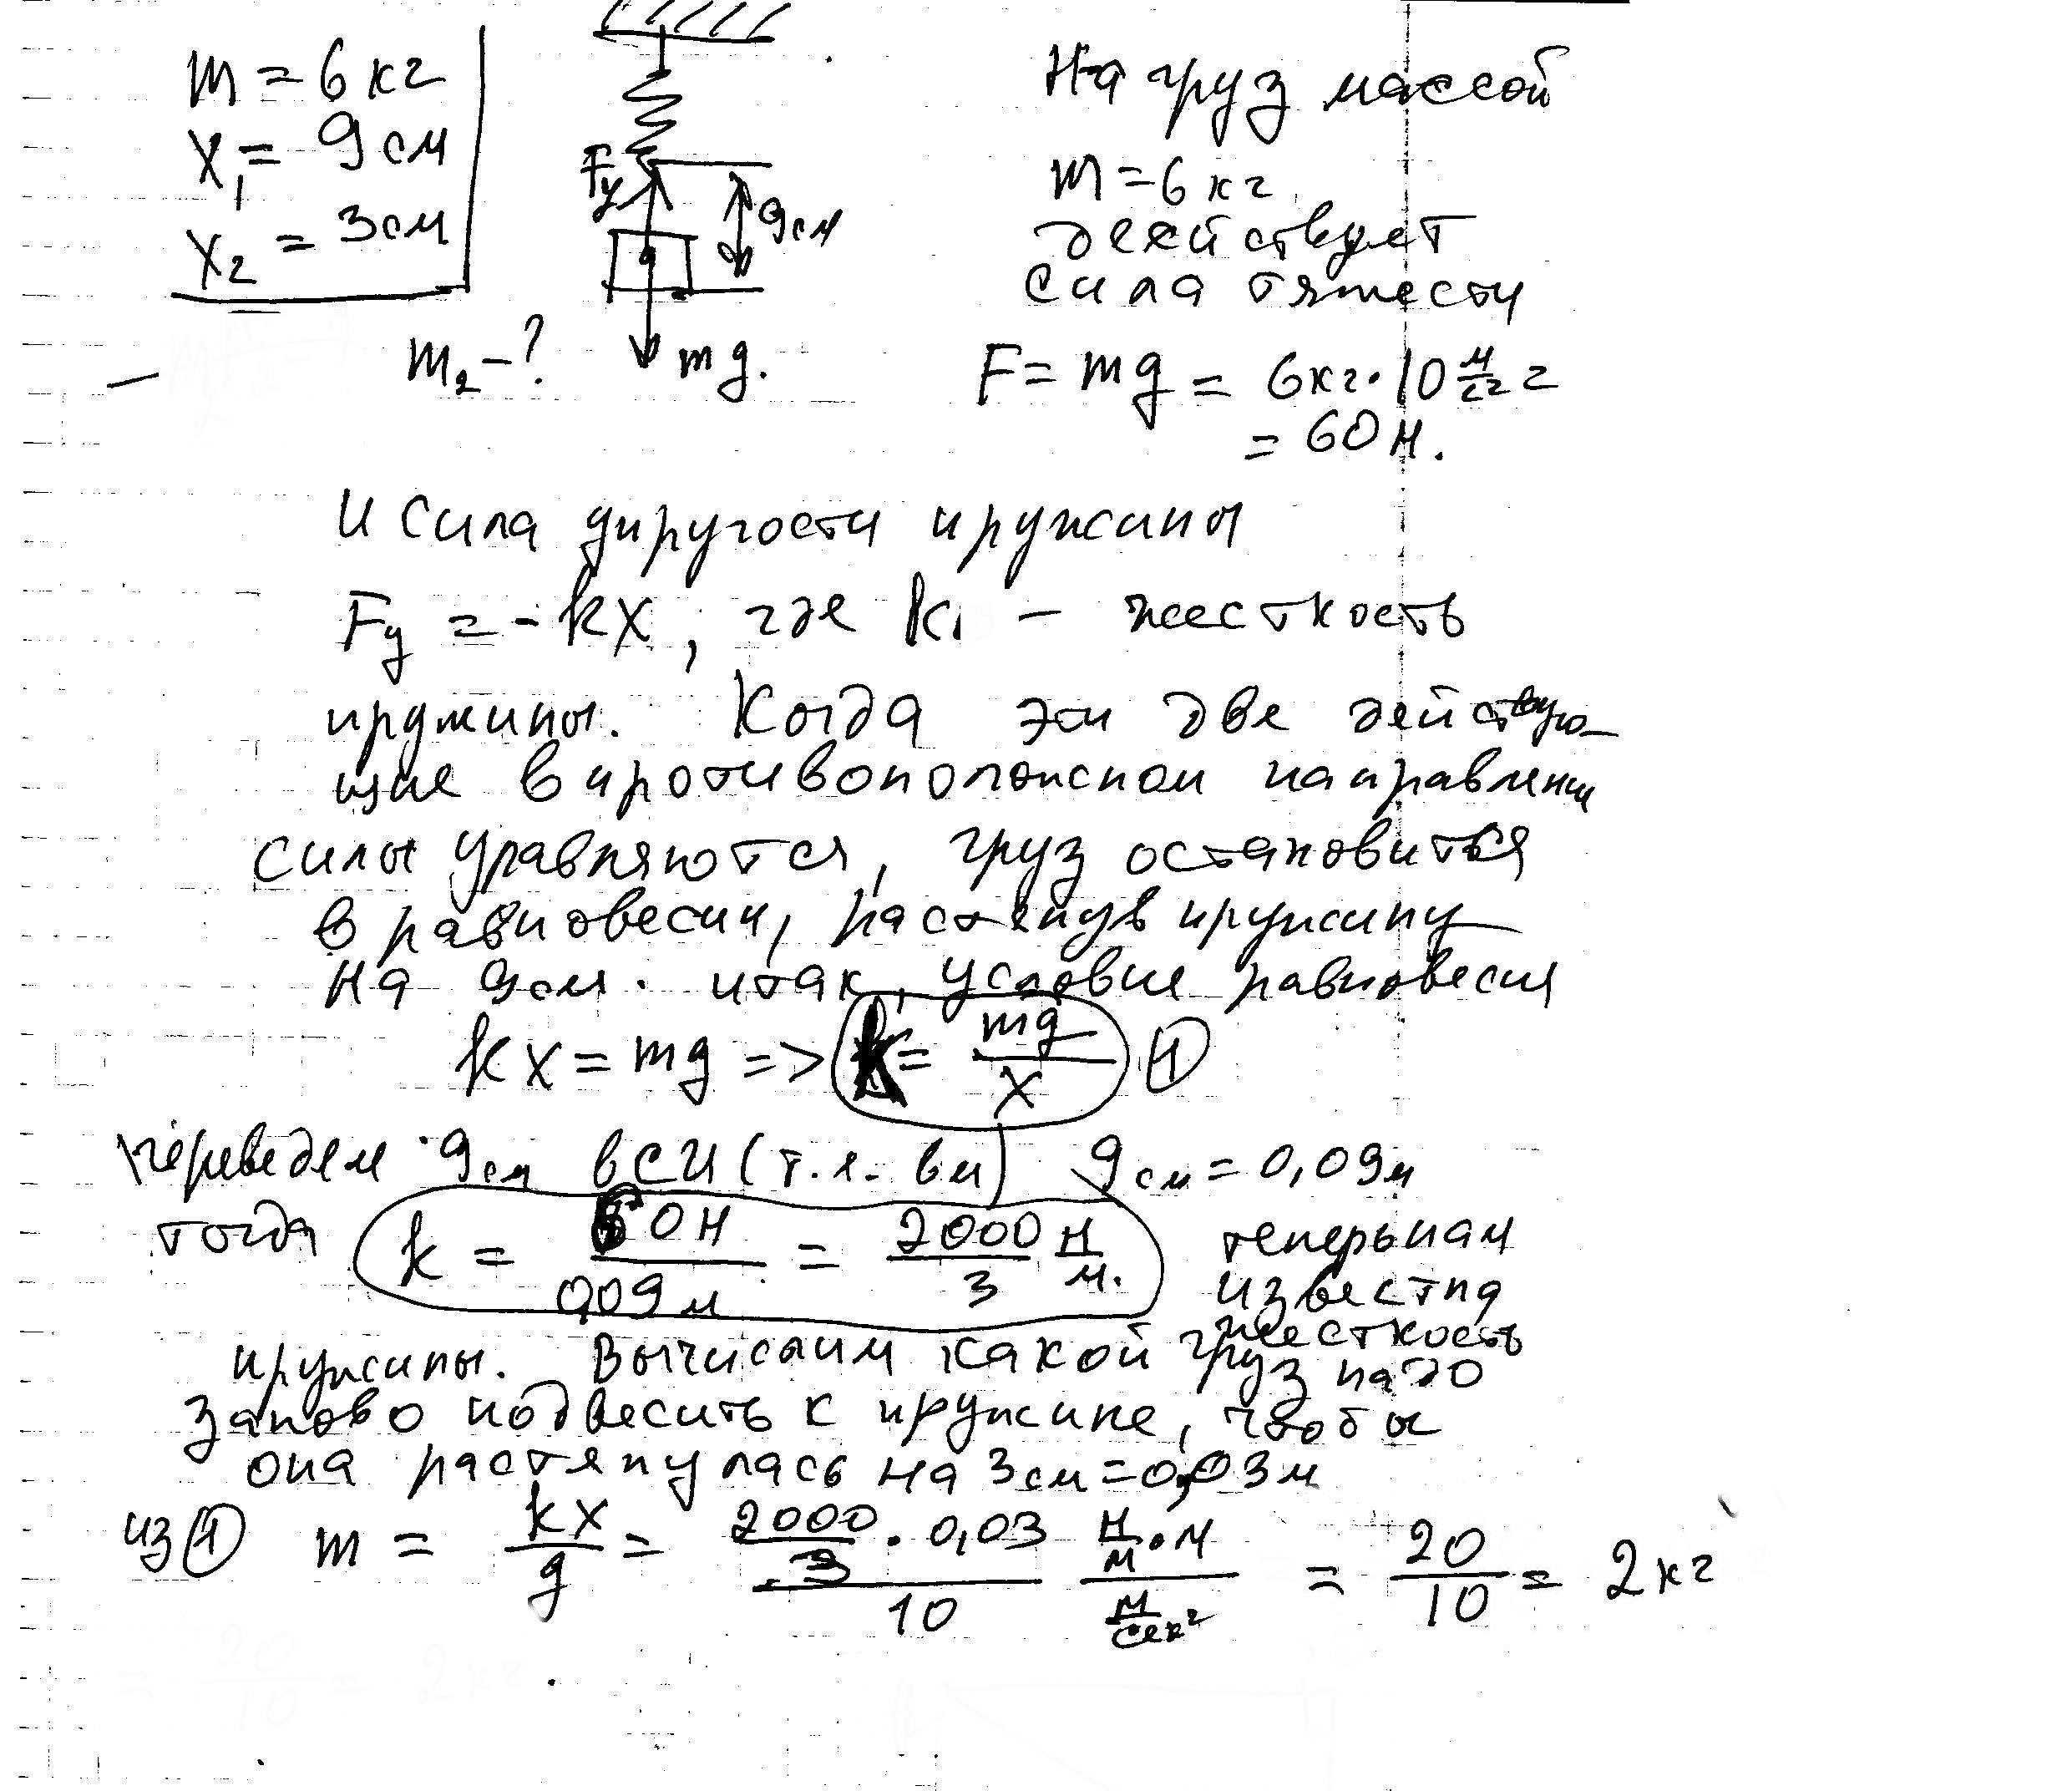 m = 6 кг
x₁ = 9 см
x₂ = 3 см
m₂ - ?
Fу
9 см
mg.
На груз массой
m = 6 кг
действует
сила тяжести
F = mg = 6 кг · 10 м/с² =
= 60 н.
и сила упругости пружины
Fу = - kx, где k - жесткость
пружины. Когда эти две действую-
щие в противоположном направлении
силы уравняются, груз остановиться
в равновесии, растянув пружину
на 9 см. итак, условие равновесия
kx = mg => k = mg/x ①
переведем 9 см в СИ (т.е. в м) 9 см = 0,09 м
тогда k = 60 Н / 0,09 м = 2000/3 Н/м. теперь нам
известна
жесткость
пружины. Вычислим какой груз надо
заново подвесить к пружине, чтобы
она растянулась на 3 см = 0,03 м
из ① m = kx/g = (2000/3 · 0,03)/10 (Н/м · м)/(м/сек²) = 20/10 = 2 кг